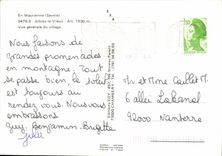 En Maurienne (Savoie)
Vue générale du village.
Nous faisons de
grandes promenades
en montagne. Tout
se passe bien, le soleil
est toujours au
rendez vous. Nous vous
embrassons
Guy, Benjamin, Brigitte
Julie
Mr et Mme Caillet M.
6 allée Lakanal
92000 Nanterre